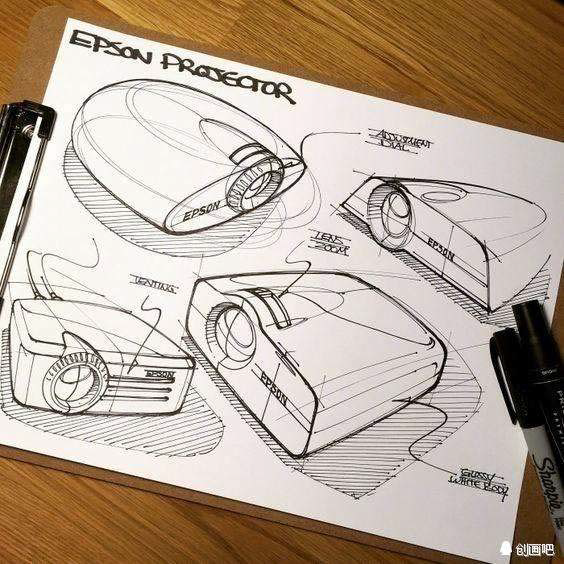 EPSON PROJECTOR
ADJUSTMENT
DIAL
EPSON
EPSON
LENS
ZOOM
VENTING
EPSON
EPSON
GLOSSY
WHITE BODY
Sharpie
创画吧